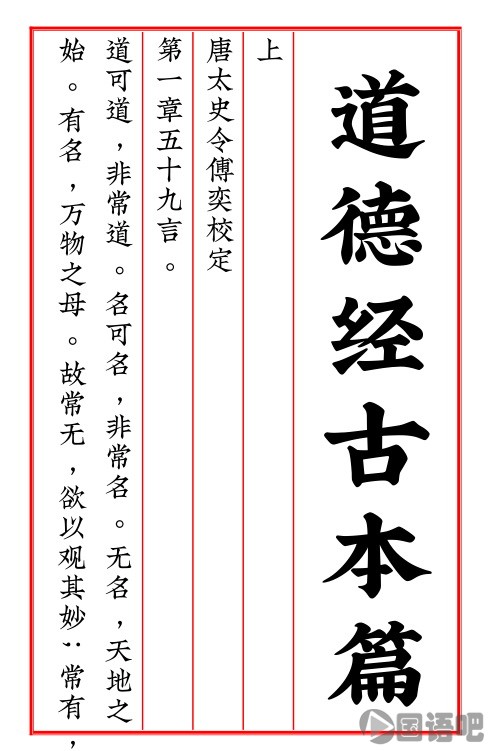 道德经古本篇
上
唐太史令傅奕校定
第一章五十九言。
道可道，非常道。名可名，非常名。无名，天地之
始。有名，万物之母。故常无，欲以观其妙；常有，
国语吧